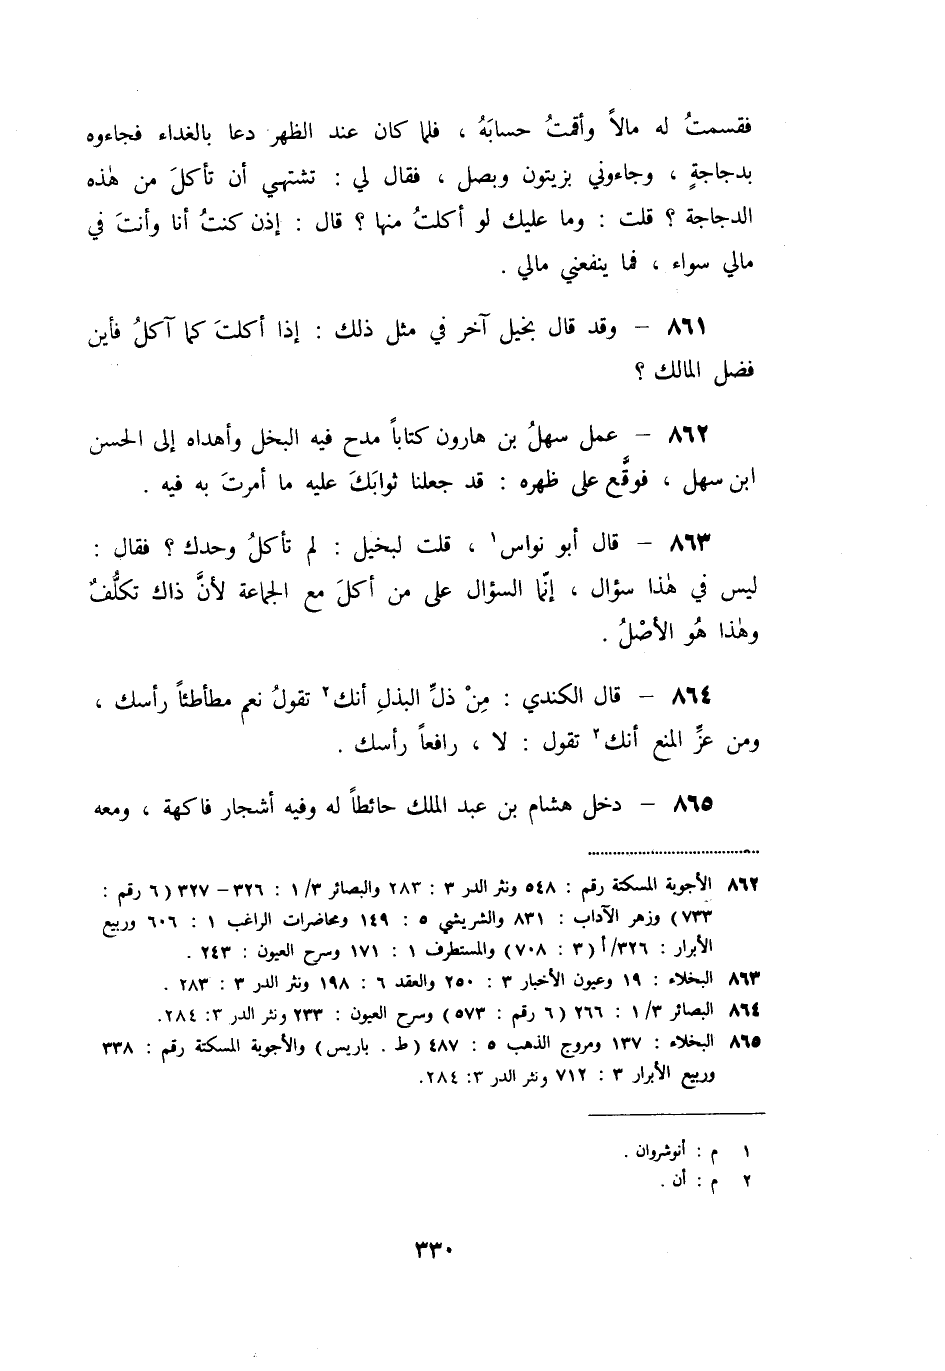 فقسمتُ له مالاً وأقمتُ حسابَهُ ، فلما كان عند الظهر دعا بالغداء فجاءوه
بدجاجةٍ ، وجاءوني بزيتون وبصل ، فقال لي : تشتهي أن تأكلَ من هٰذه
الدجاجة ؟ قلت : وما عليك لو أكلتُ منها ؟ قال : إذن كنتُ أنا وأنتَ في
مالي سواء ، فما ينفعني مالي .
٨٦١ – وقد قال بخيل آخر في مثل ذلك : إذا أكلتَ كما آكلُ فأين
فضل المالك ؟
٨٦٢ – عمل سهلُ بن هارون كتاباً مدح فيه البخل وأهداه إلى الحسن
ابن سهل ، فوقَّع على ظهره : قد جعلنا ثوابَكَ عليه ما أمرتَ به فيه .
٨٦٣ – قال أبو نواس١ ، قلت لبخيل : لم تأكلُ وحدك ؟ فقال :
ليس في هٰذا سؤال ، إنّما السؤال على من أكلَ مع الجماعة لأنَّ ذاك تكلُّفٌ
وهٰذا هُو الأصْلُ .
٨٦٤ – قال الكندي : مِنْ ذلِّ البذلِ أنك٢ تقولُ نعم مطأطئاً رأسك ،
ومن عزِّ المنع أنك٢ تقول : لا ، رافعاً رأسك .
٨٦٥ – دخل هشام بن عبد الملك حائطاً له وفيه أشجار فاكهة ، ومعه
٨٦٢ الأجوبة المسكتة رقم : ٥٤٨ ونثر الدر ٣ : ٢٨٣ والبصائر ٣/ ١ : ٣٢٦– ٣٢٧ (٦ رقم :
٧٣٣) وزهر الآداب : ٨٣١ والشريشي ٥ : ١٤٩ ومحاضرات الراغب ١ : ٦٠٦ وربيع
الأبرار : ٣٢٦/أ (٣ : ٧٠٨) والمستطرف ١ : ١٧١ وسرح العيون : ٢٤٣ .
٨٦٣ البخلاء : ١٩ وعيون الأخبار ٣ : ٢٥٠ والعقد ٦ : ١٩٨ ونثر الدر ٣ : ٢٨٣ .
٨٦٤ البصائر ٣/ ١ : ٢٦٦ (٦ رقم : ٥٧٣) وسرح العيون : ٢٣٣ ونثر الدر ٣: ٢٨٤.
٨٦٥ البخلاء : ١٣٧ ومروج الذهب ٥ : ٤٨٧ (ط . باريس) والأجوبة المسكتة رقم : ٣٣٨
وربيع الأبرار ٣ : ٧١٢ ونثر الدر ٣: ٢٨٤.
١ م : أنوشروان .
٢ م : أن .
٣٣٠